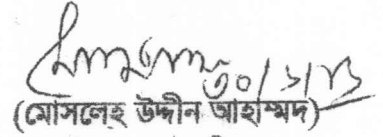 ৩০/১/১৩
(মোসলেহ উদ্দীন আহাম্মদ)